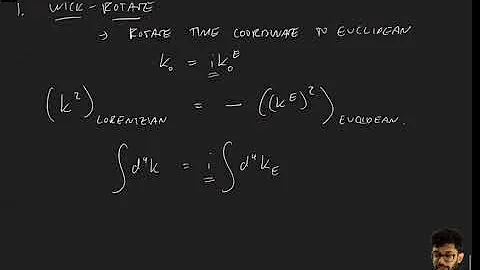 1. WICK-ROTATE
→ ROTATE TIME COORDINATE TO EUCLIDEAN
k₀ = i k₀ᴱ
(k²)_LORENTZIAN = - ((kᴱ)²)_EUCLIDEAN.
∫d⁴k = i ∫d⁴k_E